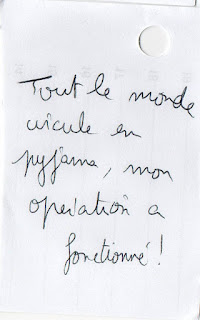 Tout le monde
circule en
pyjama, mon
opération a
fonctionné !